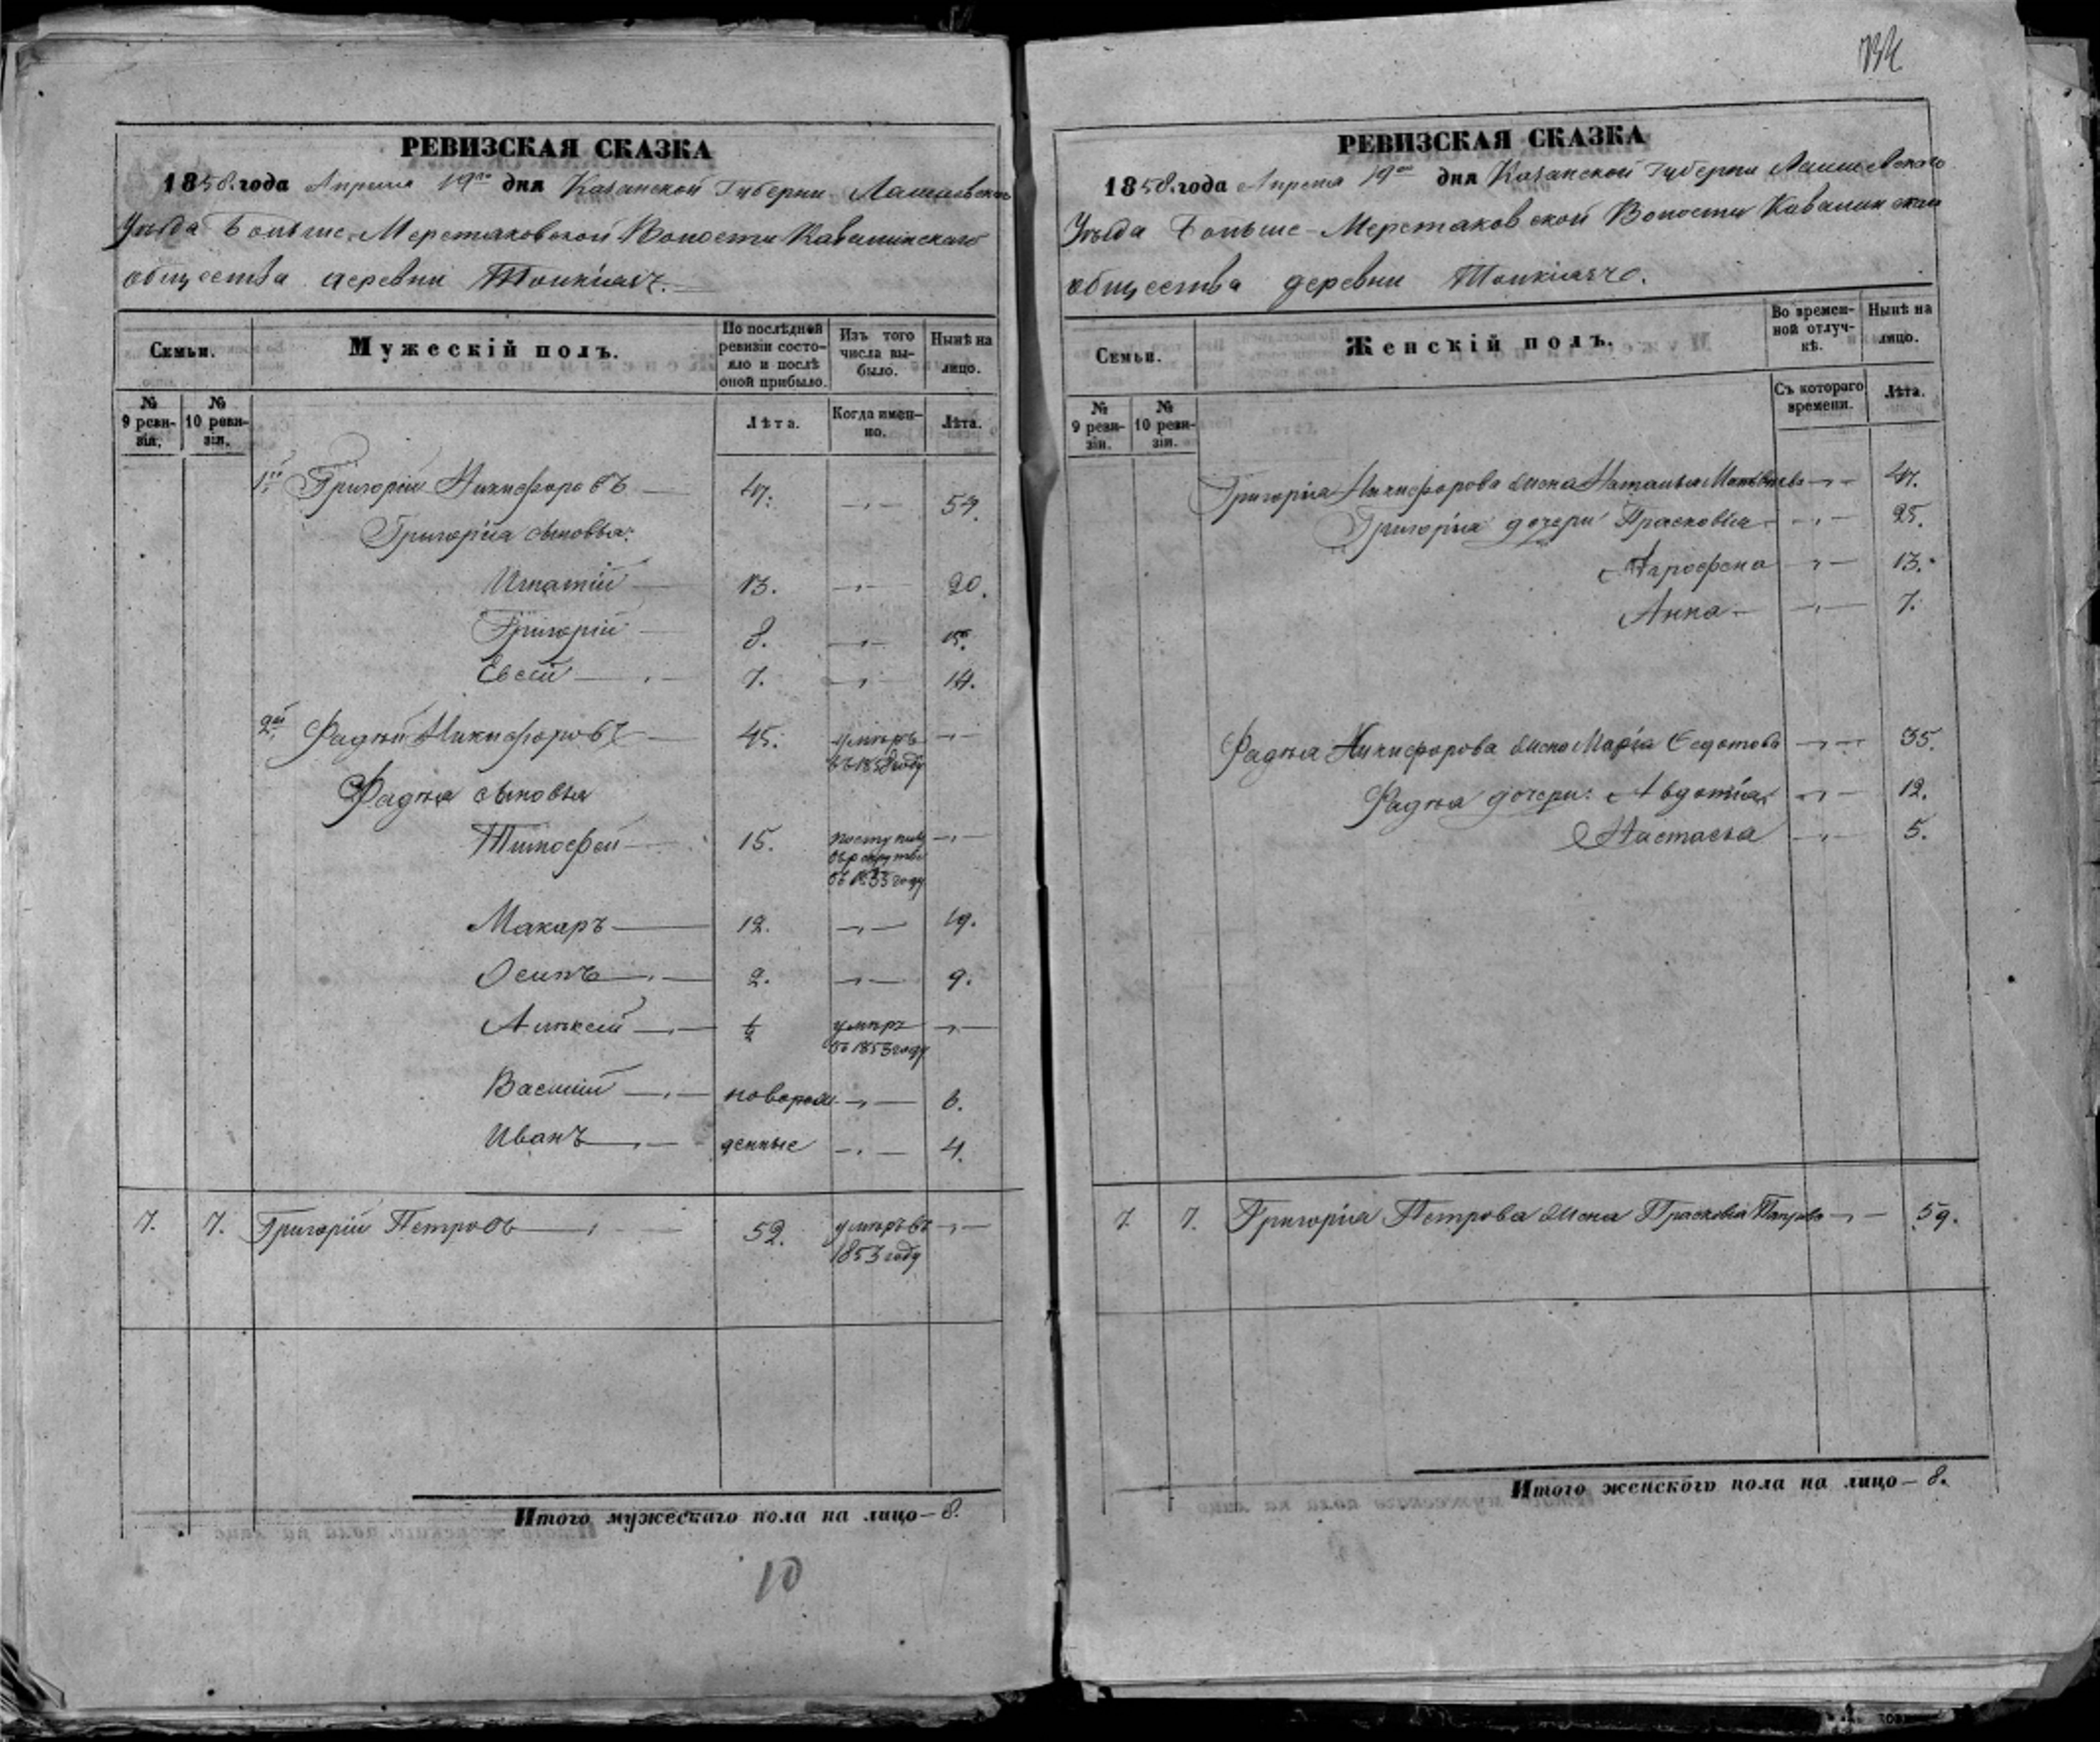 РЕВИЗСКАЯ СКАЗКА
1858. года Апреля 19го дня Казанской Губерни Лаишевскаго
Уѣзда Больше-Мереtaковской Волости Кавалинскаго
общества деревни
Семьи.
Мужескій полъ.
По послѣдней ревизіи состояло и послѣ оной прибыло.
Изъ того числа выбыло.
Нынѣ на лицо.
№ 9 ревизіи.
№ 10 ревизіи.
Лѣта.
Когда именно.
Лѣта.
1й Григорій Никифоровъ 47. 54.
Григорія сыновья:
Игнатій 13. 20.
Григорій 8. 15.
Евсей 7. 14.
2й Фадѣй Никифоровъ 45. умѣръ
въ 1858 году
Фадѣя сыновья
Тимофей 15. поступилъ
въ рекрутъ
въ 1855 году
Макаръ 12. 19.
Осипъ 2. 9.
Алѣксѣй ½ умѣръ
въ 1853 году
Василій новорож 6.
Иванъ денные 4.
7. 7. Григорій Петровъ 52. умѣръ въ
1853 году
Итого мужескаго пола на лицо – 8.
10
РЕВИЗСКАЯ СКАЗКА
1858. года Апреля 19го дня Казанской Губерни Лаишевскаго
Уѣзда Больше-Мереtaковской Волости Кавалинскаго
общества деревни
Семьи.
Женскій полъ.
Во временной отлучкѣ.
Нынѣ на лицо.
№ 9 ревизіи.
№ 10 ревизіи.
Съ котораго времени.
Лѣта.
Григорія Никифорова жена Наталья Матвѣева 47.
Григорія дочери Прасковія 25.
Афросфена 13.
Анна 7.
Фадѣя Никифорова жена Марія Федотова 35.
Фадѣя дочери: Авдотія 12.
Настасья 5.
7. 7. Григорія Петрова жена Прасковія Петрова 59.
Итого женскаго пола на лицо – 8.